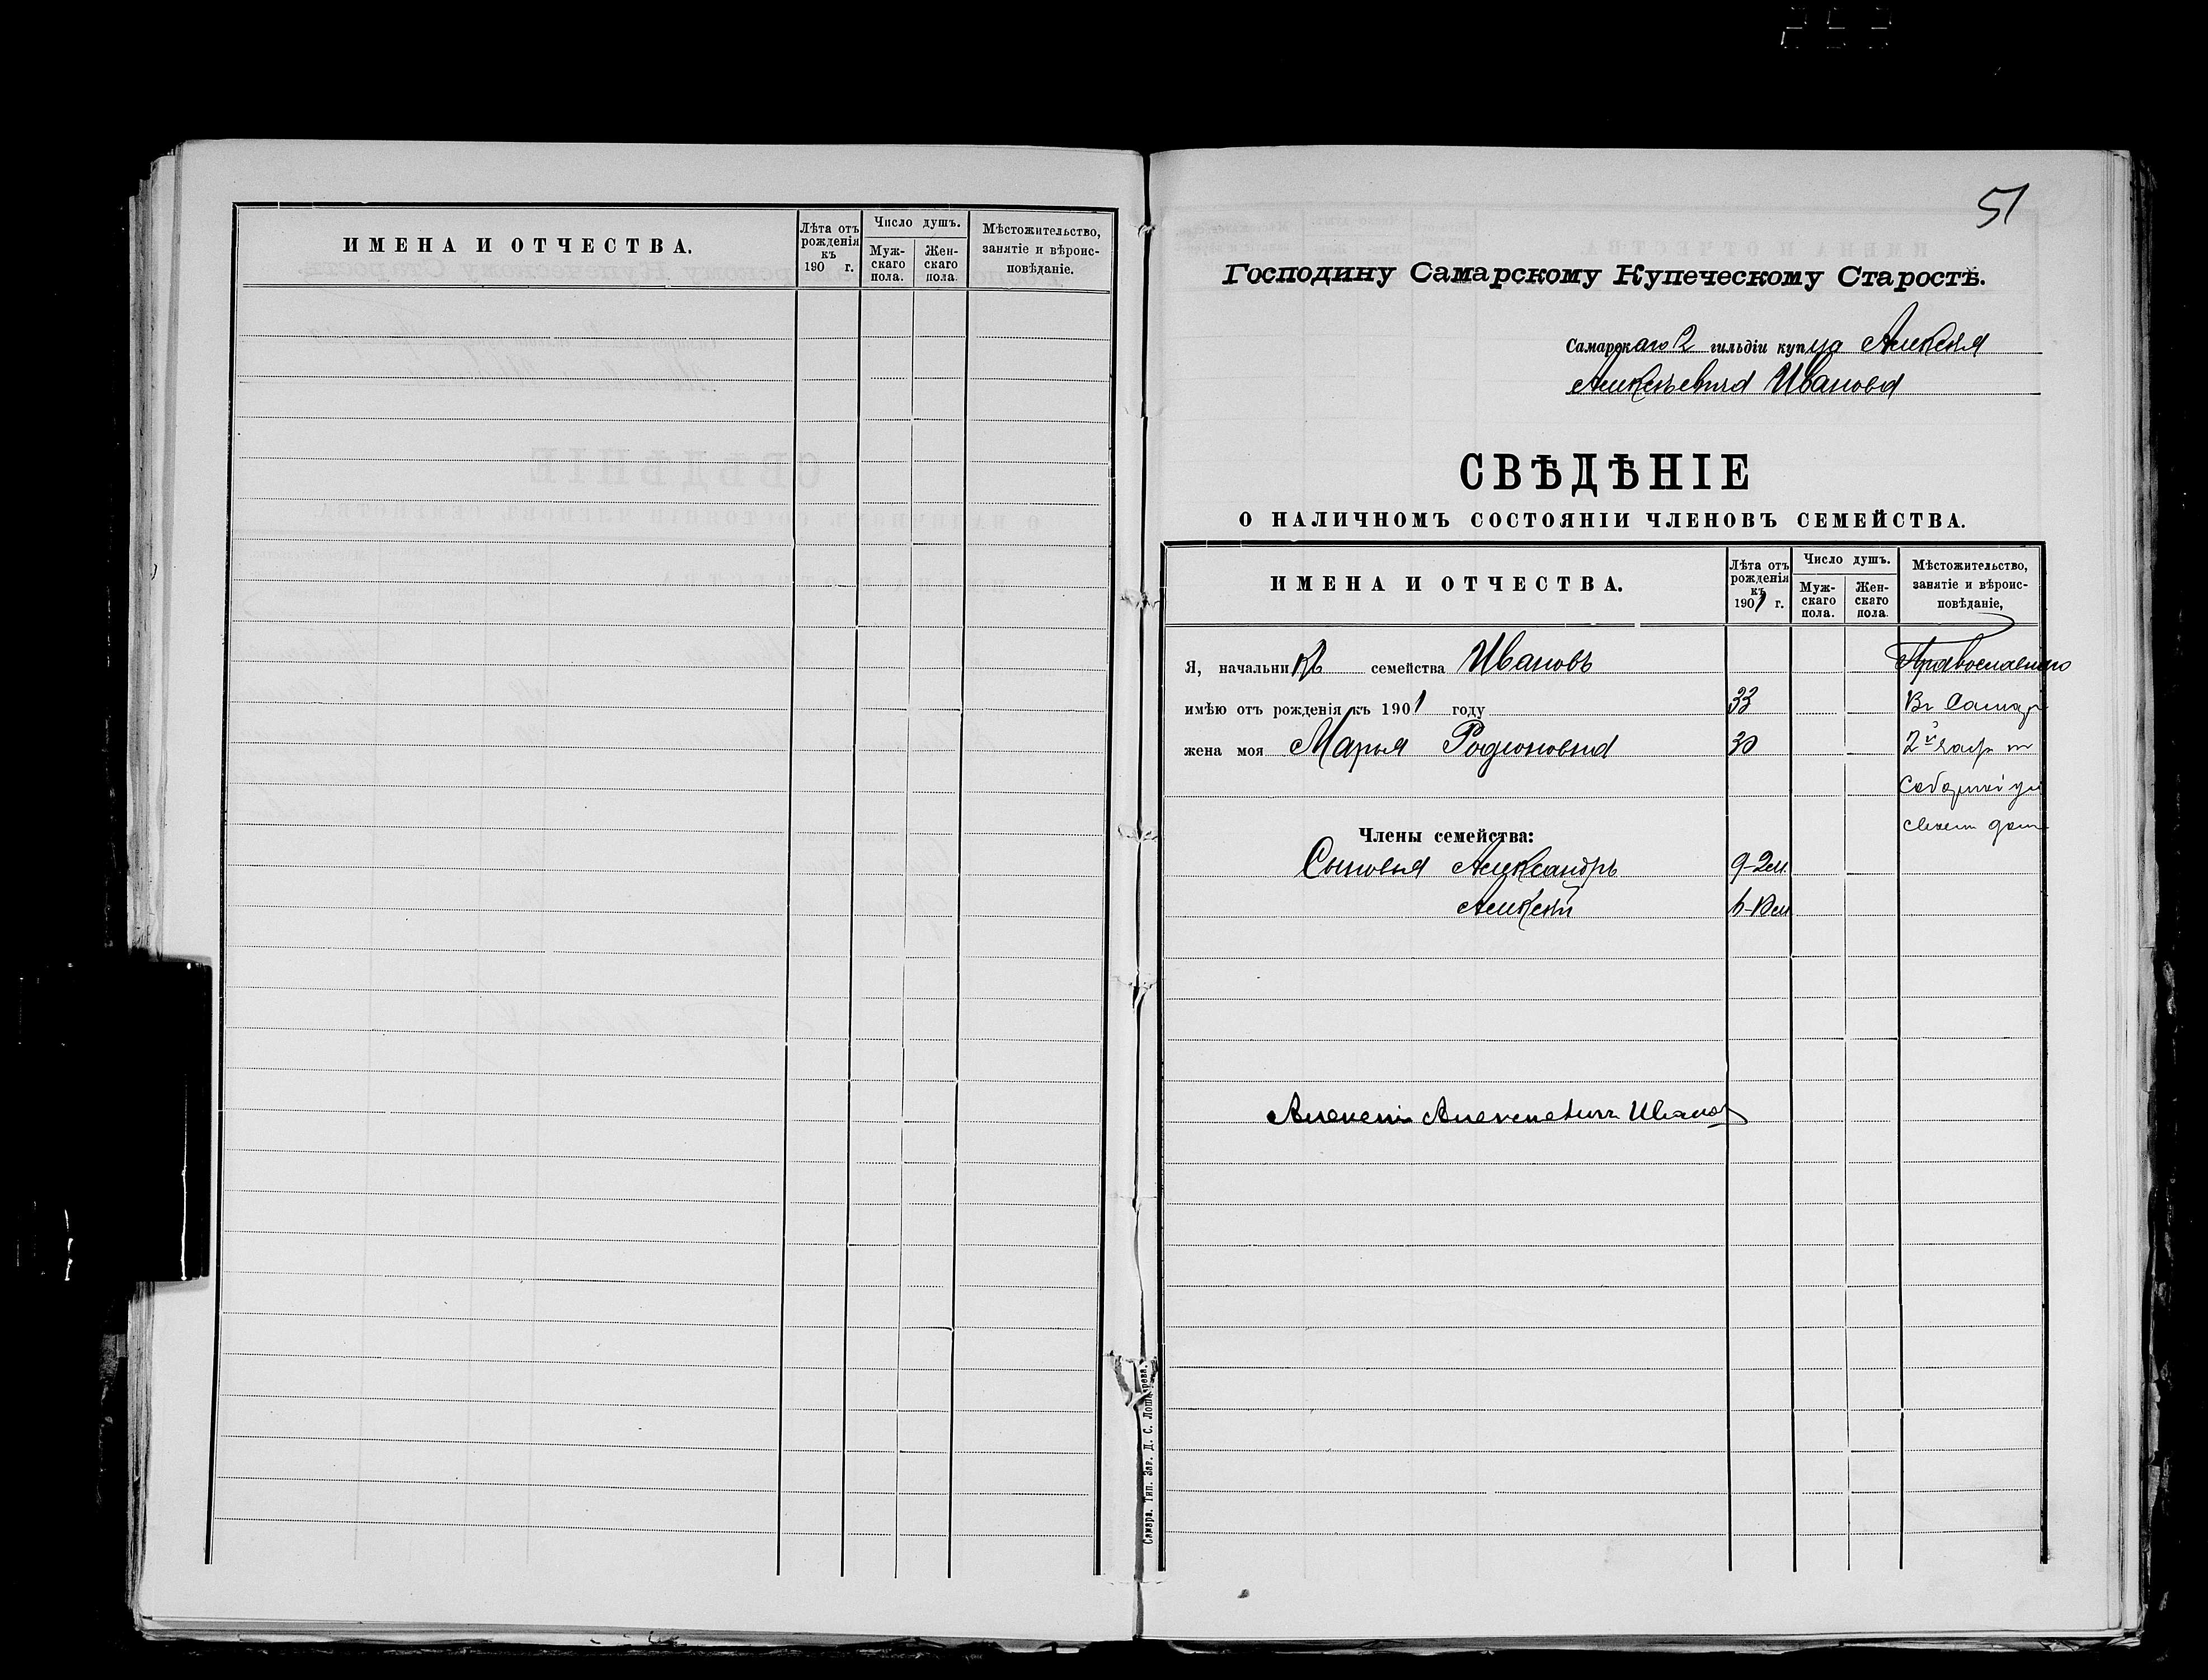 ИМЕНА И ОТЧЕСТВА.
Лѣта отъ рожденія къ 190 г.
Число душъ.
Мужскаго пола.
Женскаго пола.
Мѣстожительство, занятіе и вѣроисповѣданіе.
51
Господину Самарскому Купеческому Старостѣ.
Самарскаго 2 гильдіи купца Алексея
Алексѣевича Иванова
СВѢДѢНІЕ
О НАЛИЧНОМЪ СОСТОЯНІИ ЧЛЕНОВЪ СЕМЕЙСТВА.
ИМЕНА И ОТЧЕСТВА.
Лѣта отъ рожденія къ 1901 г.
Число душъ.
Муж-
скаго
пола.
Жен-
скаго
пола.
Мѣстожительство,
занятіе и вѣроис-
повѣданіе,
Я, начальникъ семейства Ивановъ Православнаго
имѣю отъ рожденія къ 1901 году 33 Въ Самар
жена моя Марья Родионовна 30 2й част
Соборной ул
Члены семейства: своем дом
Сыновья Александръ 9-2м
Алексѣй
Алексей Алексеевичъ Иванов
Самара. Тип. Зав. Д. С.